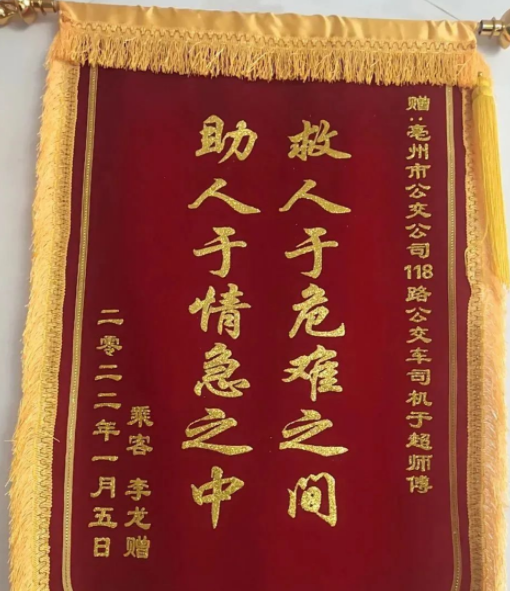 赠:亳州市公交公司118路公交车司机于超师傅
救人于危难之间
助人于情急之中
乘客 李龙赠
二零二二年一月五日